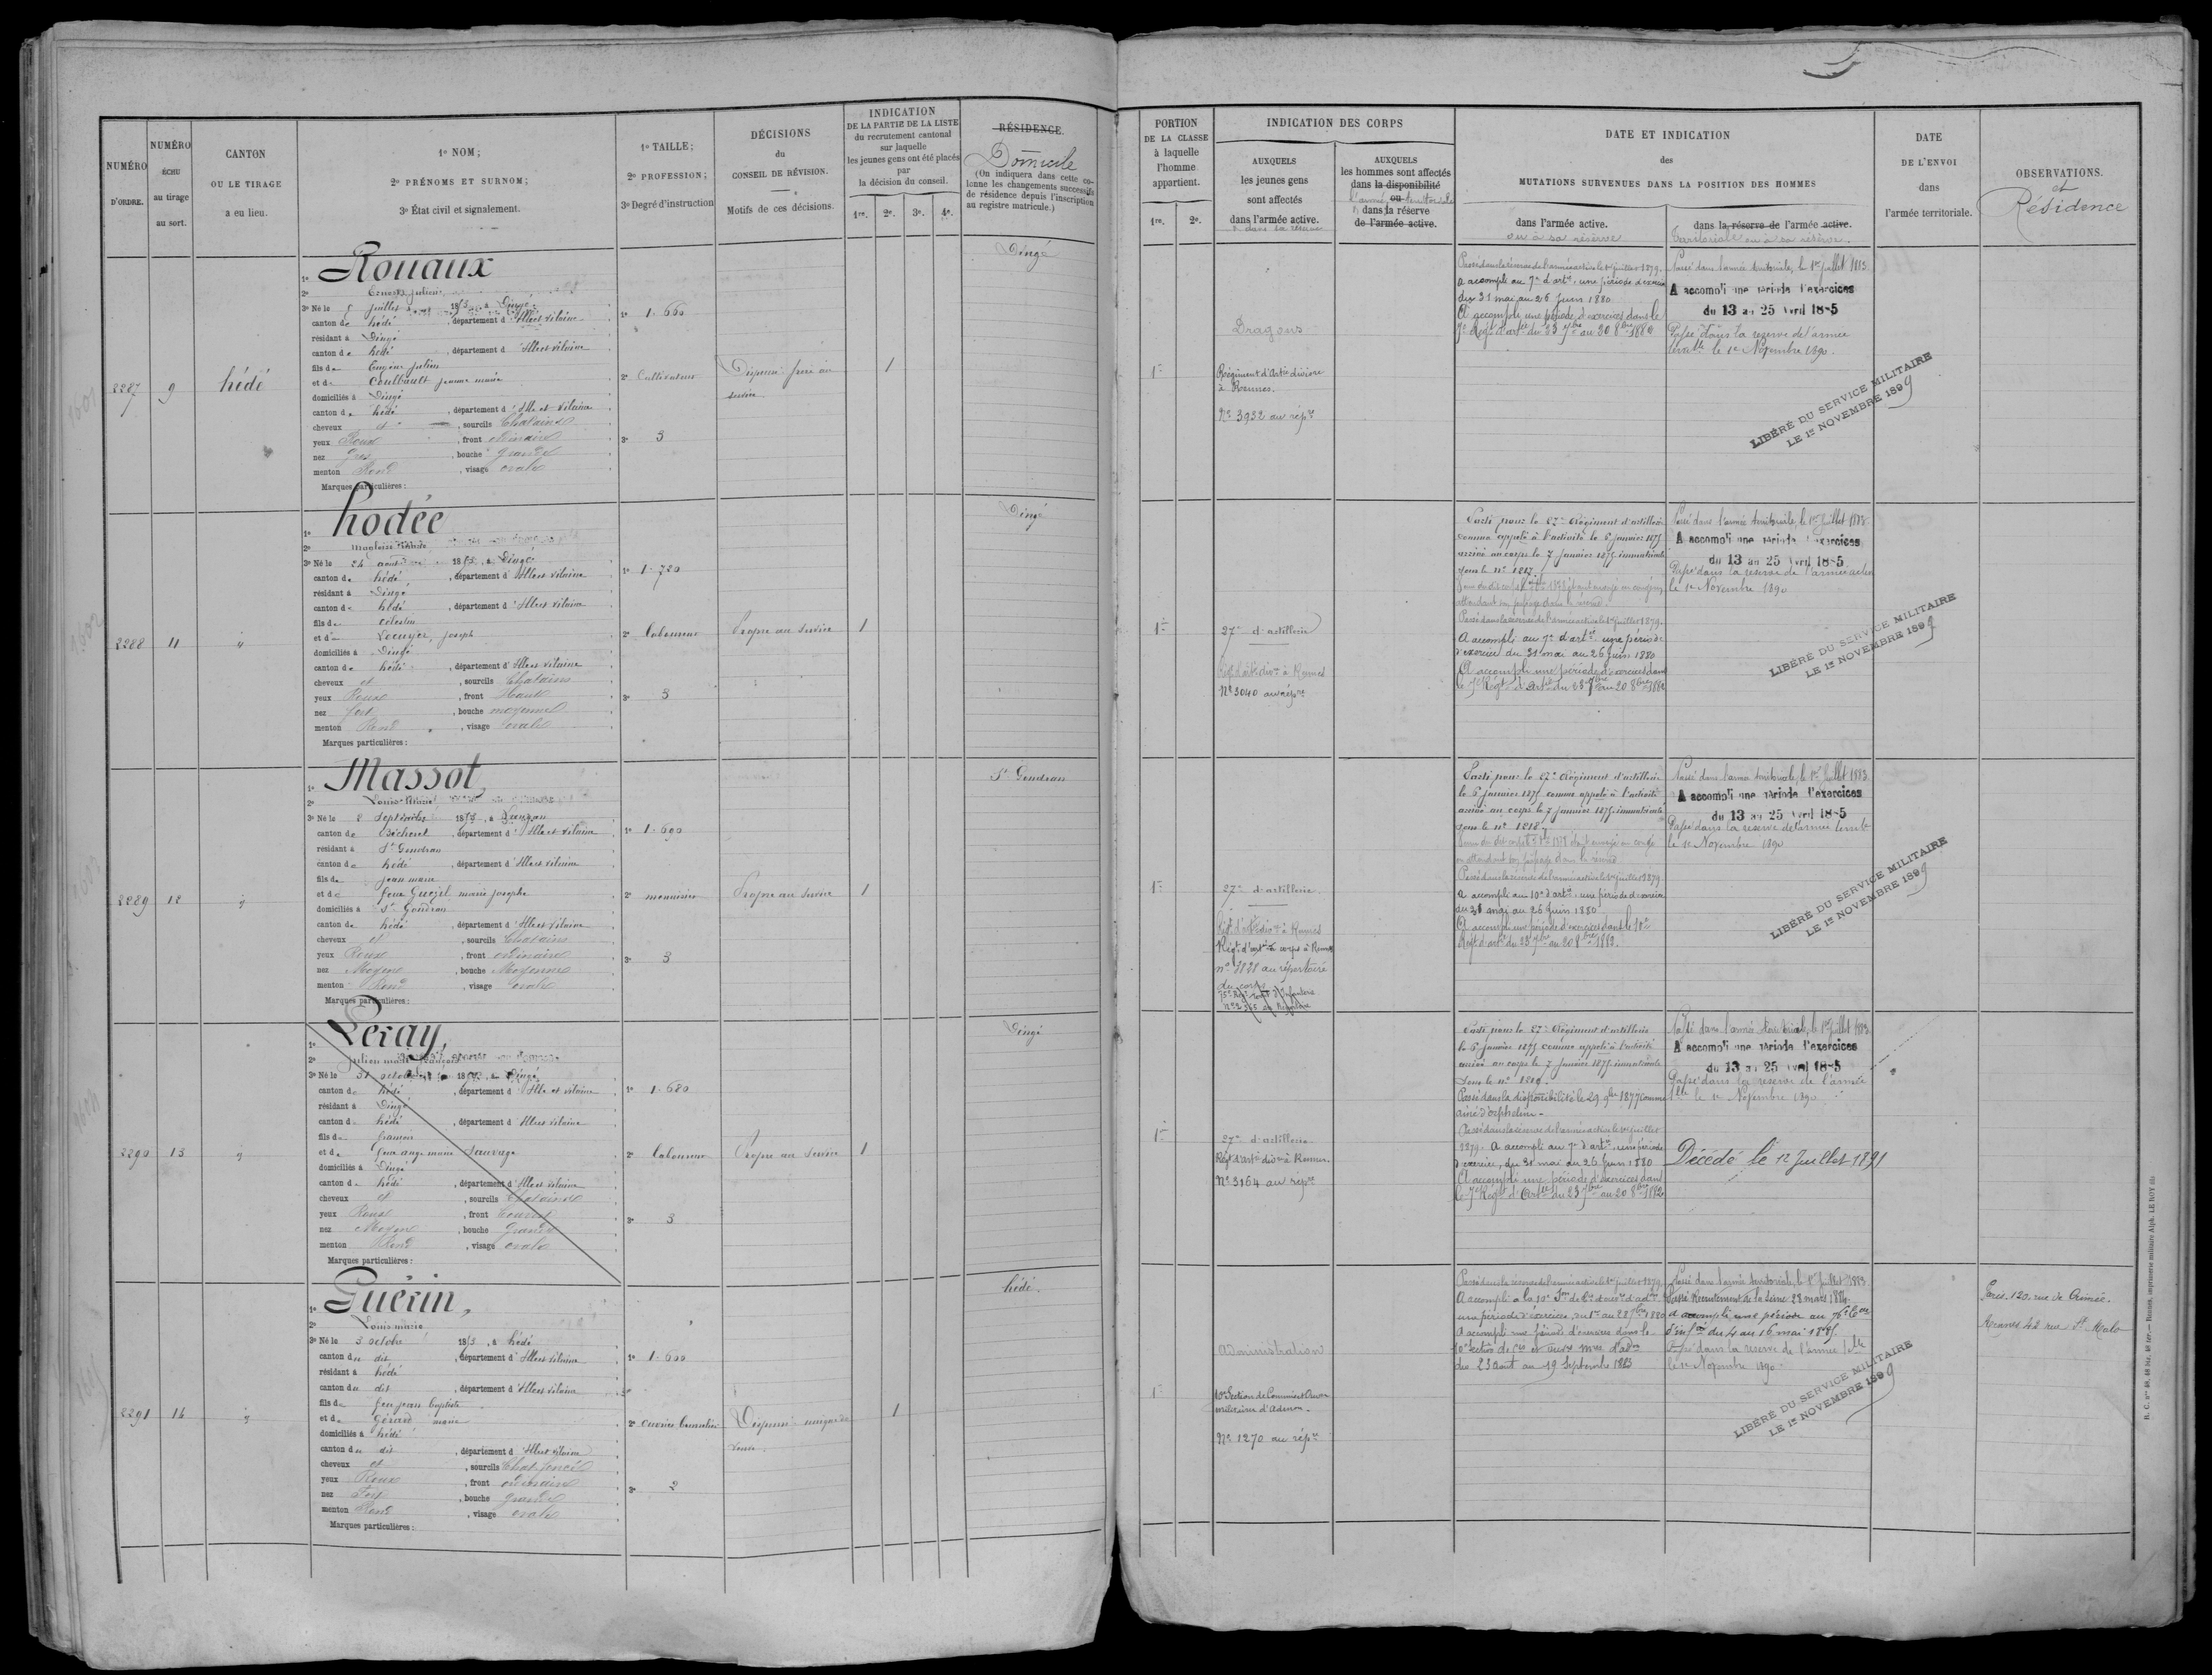 NUMÉRO
D'ORDRE.
NUMÉRO
ÉCHU
au tirage
au sort.
CANTON
OU LE TIRAGE
a eu lieu.
1º NOM;
2º PRÉNOMS ET SURNOM;
3º État civil et signalement.
1º TAILLE;
2º PROFESSION;
3º Degré d'instruction
DÉCISIONS
du
CONSEIL DE RÉVISION.
Motifs de ces décisions.
INDICATION
DE LA PARTIE DE LA LISTE
du recrutement cantonal
sur laquelle
les jeunes gens ont été placés
par
la décision du conseil.
1re. 2e. 3e. 4e.
RÉSIDENCE.
Domicile
(On indiquera dans cette co-
lonne les changements successifs
de résidence depuis l'inscription
au registre matricule.)
PORTION
DE LA CLASSE
à laquelle
l'homme
appartient.
1re. 2e.
INDICATION DES CORPS
AUXQUELS
les jeunes gens
sont affectés
dans l'armée active.
& dans sa réserve
AUXQUELS
les hommes sont affectés
dans la disponibilité
ou
dans la réserve
de l'armée active.
DATE ET INDICATION
des
MUTATIONS SURVENUES DANS LA POSITION DES HOMMES
dans l'armée active.
ou à sa réserve
dans la réserve de l'armée active.
territoriale ou à sa réserve.
DATE
DE L'ENVOI
dans
l'armée territoriale.
OBSERVATIONS.
et
Résidence
2287
9
hédé
1º Rouaux
3º Né le 5 juillet 1853, à Dingé
canton de hédé, département d'Ille et Vilaine
résidant à Dingé
canton de hédé, département d'Ille et Vilaine
fils de Eugène Julien
et de Coulbault jeanne marie
domiciliés à Dingé
canton de hédé, département d'Ille et Vilaine
cheveux et, sourcils Chatains
yeux Roux, front ordinaire
nez gros, bouche grande
menton Rond, visage ovale
Marques particulières:
1º 1.660
2º Cultivateur
3º 3
Dispensé frère au
service
1
Dingé
1re
Dragons
Régiment d'Artie divisre
à Rennes.
Nº 3932 au répre
Passé dans la réserve de l'armée active le 1er juillet 1879.
A accompli au 7e d'artie une période d'exercice
du 31 mai au 26 Juin 1880
A accompli une période d'exercices dans le
7e Régt d'artie du 23 7bre au 20 8bre 1882
Passé dans l'armée territoriale, le 1er juillet 1883.
A accompli une période d'exercices
du 13 au 25 Avril 1885
Passé dans la réserve de l'armée
terrelle le 1er Novembre 1890.
LIBÉRÉ DU SERVICE MILITAIRE
LE 1er NOVEMBRE 1899
2288
11
"
1º hodée
3º Né le 24 août 1853, à Dingé
canton de hédé, département d'Ille et Vilaine
résidant à Dingé
canton de hédé, département d'Ille et Vilaine
fils de Célestin
et de Lecuyer, Joseph
domiciliés à Dingé
canton de hédé, département d'Ille et Vilaine
cheveux et, sourcils Chatains
yeux Roux, front Haut
nez fort, bouche moyenne
menton Rond, visage ovale
Marques particulières:
1º 1.720
2º laboureur
3º 3
Propre au service
1
Dingé
1re
27e d'artillerie
Régt d'artie divre à Rennes
Nº 3040 au répre
Parti pour le 27e Régiment d'artillerie
comme appelé à l'activité le 6 janvier 1875
arrivé au corps le 7 janvier 1875, immatriculé
sous le nº 1217.
attendant son passage dans la réserve.
Passé dans la réserve de l'armée active le 1er juillet 1879.
A accompli au 7e d'artie une période
d'exercice du 31 mai au 26 Juin 1880
A accompli une période d'exercices dans
le 7e Régt d'artie du 23 7bre au 20 8bre 1882
Passé dans l'armée territoriale, le 1er juillet 1883
A accompli une période d'exercices
du 13 au 25 Avril 1885
Passé dans la réserve de l'armée active
le 1er Novembre 1890
LIBÉRÉ DU SERVICE MILITAIRE
LE 1er NOVEMBRE 1899
2289
12
"
1º Massot,
3º Né le 8 Septembre 1853, à
canton de Bécherel, département d'Ille et Vilaine
résidant à St Gondran
canton de hédé, département d'Ille et Vilaine
fils de jean marie
et de feue Guezel marie josephe
domiciliés à St Gondran
canton de hédé, département d'Ille et Vilaine
cheveux et, sourcils Chatains
yeux Roux, front ordinaire
nez Moyen, bouche Moyenne
menton Rond, visage ovale
Marques particulières:
1º 1.690
2º menuisier
3º 3
Propre au service
1
St Gondran
1re
27e d'artillerie
Régt d'artie divre à Rennes
Régt d'artie de corps à Rennes
nº 3131 au répertoire
du corps
Parti pour le 27e Régiment d'artillerie
le 6 janvier 1875 comme appelé à l'activité
arrivé au corps le 7 janvier 1875, immatriculé
sous le nº 1218.
en attendant son passage dans la réserve
Passé dans la réserve de l'armée active le 1er juillet 1879
A accompli au 10e d'artie une période d'exercice
du 31 mai au 26 Juin 1880
A accompli une période d'exercices dans le 10e
Régt d'artie du 23 7bre au 20 8bre 1882.
Passé dans l'armée territoriale, le 1er juillet 1883.
A accompli une période d'exercices
du 13 au 25 Avril 1885
Passé dans la réserve de l'armée terrle
le 1er Novembre 1890
LIBÉRÉ DU SERVICE MILITAIRE
LE 1er NOVEMBRE 1899
2290
13
"
1º Leray,
3º Né le 31 octobre 1853, à Dingé
canton de hédé, département d'Ille et Vilaine
résidant à Dingé
canton de hédé, département d'Ille et Vilaine
fils de françois
et de feue ange marie Sauvage
domiciliés à Dingé
canton de hédé, département d'Ille et Vilaine
cheveux et, sourcils Chatains
yeux Roux, front Couvert
nez Moyen, bouche Grande
menton Rond, visage ovale
Marques particulières:
1º 1.680
2º laboureur
3º 3
Propre au service
1
Dingé
1re
27e d'artillerie
Régt d'artie divre à Rennes
Nº 3164 au répre
Parti pour le 27e Régiment d'artillerie
le 6 janvier 1875 comme appelé à l'activité
arrivé au corps le 7 janvier 1875, immatriculé
sous le nº 1219.
Passé dans la disponibilité le 29 9bre 1877 comme
ainé d'orphelins.
Passé dans la réserve de l'armée active le 1er juillet
1879. A accompli au 7e d'artie une période
d'exercice, du 31 mai au 26 Juin 1880
A accompli une période d'exercices dans
le 7e Régt d'Artie du 23 7bre au 20 8bre 1882
Passé dans l'armée territoriale, le 1er juillet 1883.
A accompli une période d'exercices
du 13 au 25 Avril 1885
Passé dans la réserve de l'armée
tlle le 1er Novembre 1890
Décédé le 12 Juillet 1891
2291
16
"
1º Guérin,
2º Louis marie
3º Né le 3 octobre 1853, à hédé
canton du dit, département d'Ille et Vilaine
résidant à hédé
canton du dit, département d'Ille et Vilaine
fils de feu jean baptiste
et de Gérard marie
domiciliés à hédé
canton du dit, département d'Ille et Vilaine
cheveux et, sourcils Chat. foncés
yeux Roux, front ordinaire
nez Fort, bouche grande
menton Rond, visage ovale
Marques particulières:
1º 1.600
3º 2
1
hédé.
1re
Administration
10e Section de Commis et Ouvrs
militaires d'Admon.
Nº 1270 au répre
Passé dans la réserve de l'armée active le 1er juillet 1879
une période d'exercices, du 1er au 28 7bre 1880
A accompli une période d'exercices dans la
10e section de Cis et ouvrs mres d'adon
du 23 août au 19 Septembre 1883
Passé dans l'armée territoriale, le 1er Juillet 1883
Passé Recrutement de la Seine 28 mars 1884.
A accompli une période au
d'infie du 4 au 16 mai 1885.
Passé dans la réserve de l'armée tlle
le 1er Novembre 1890
LIBÉRÉ DU SERVICE MILITAIRE
LE 1er NOVEMBRE 1899
Paris. 120, rue de Crimée.
Rennes 42 rue St Malo